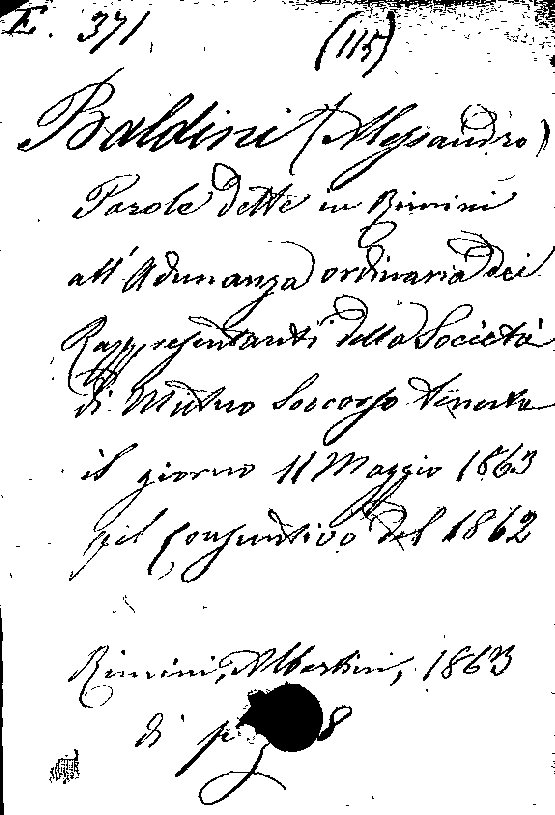 E. 371 (115)
Baldini (Alessandro)
Parole dette in Rimini
all'Adunanza ordinaria dei
Rappresentanti della Società
di Mutuo Soccorso tenuta
il giorno 11 Maggio 1863
pel Consuntivo del 1862
Rimini, Albertini, 1863
di p 8